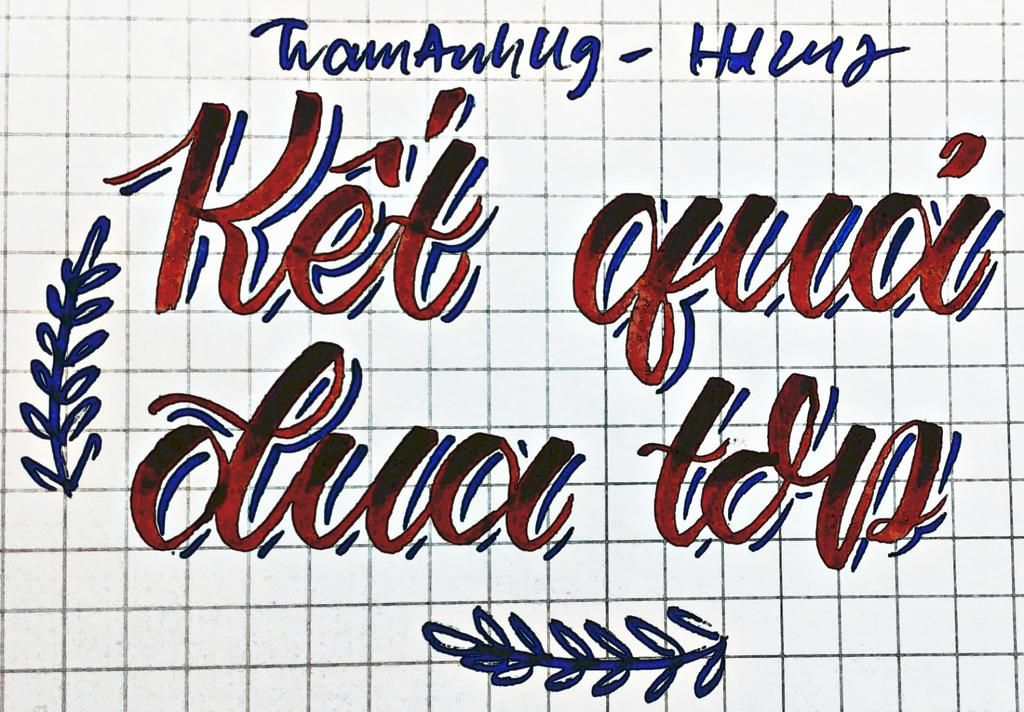 TramAnhUg -
Kết quả
đua top